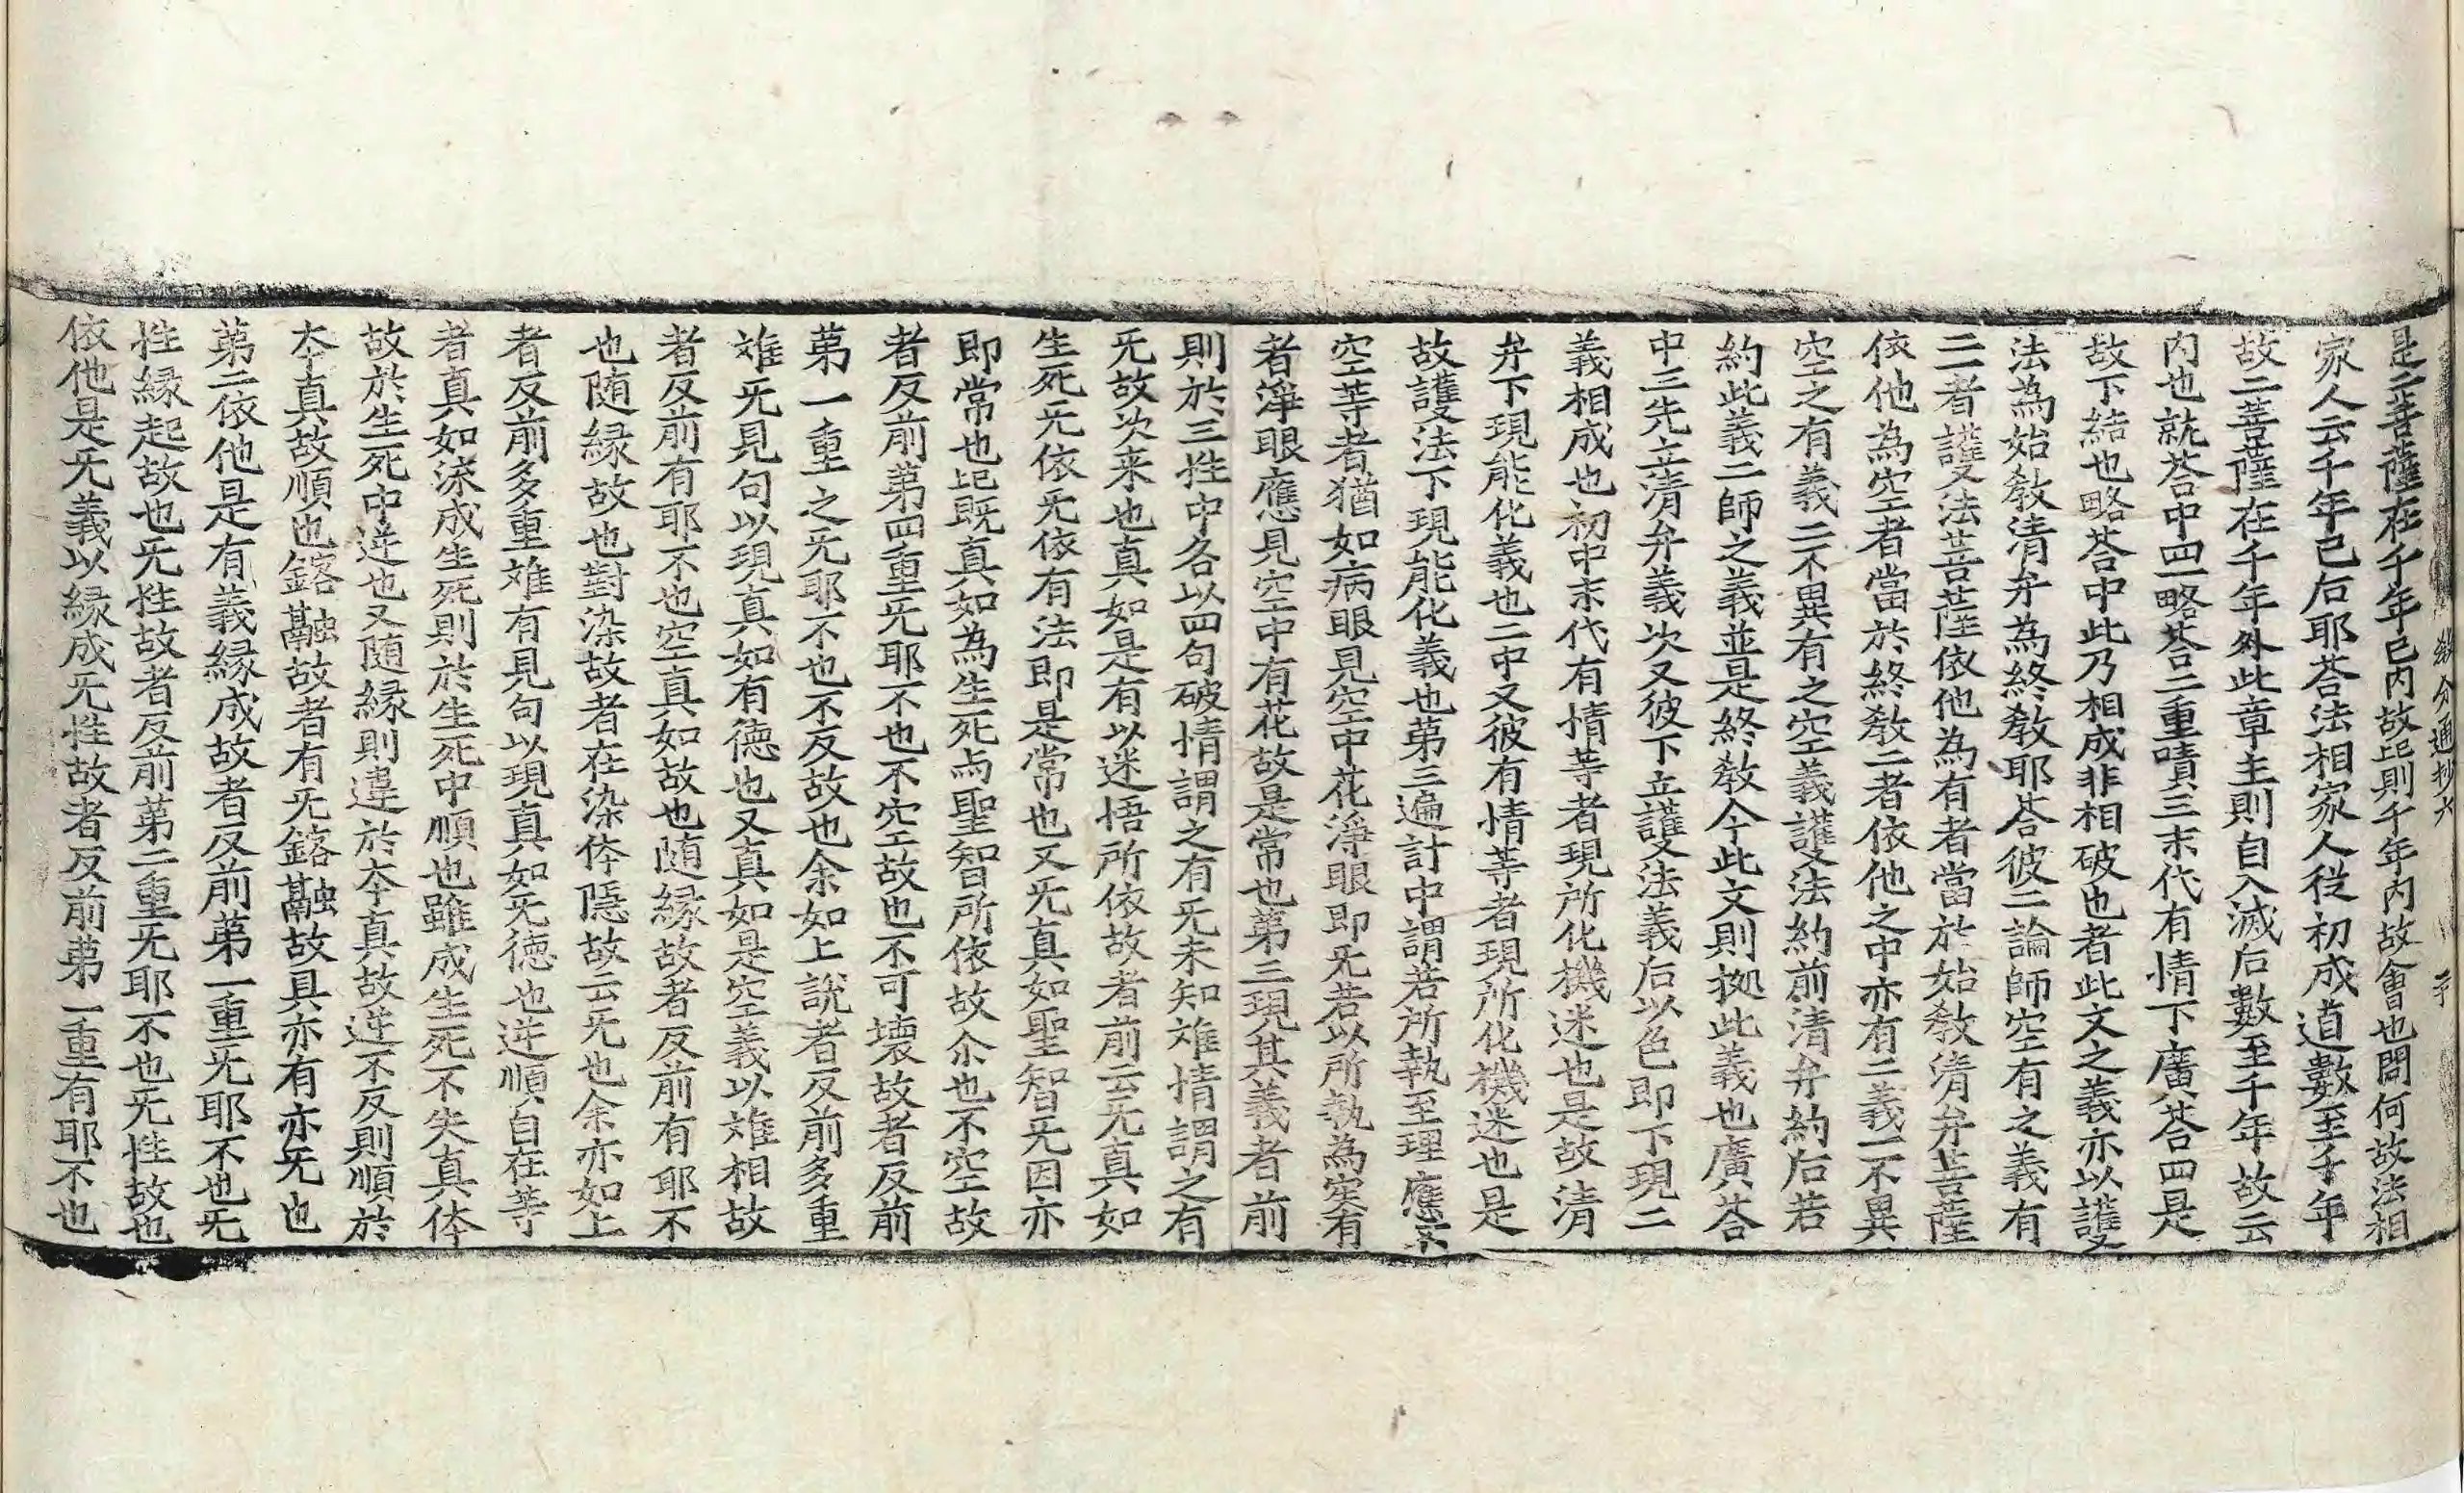 教分通抄六 二十
是二菩薩在千年已内故記則千年内故會也問何故法相
家人云千年已后耶荅法相家人從初成道數至千年
故二菩薩在千年外此章主則自入滅后數至千年故云
内也就荅中四一略荅二重嘖三末代有情下廣荅四是
故下結也略荅中此乃相成非相破也者此文之義亦以護
法為始敎清弁為終敎耶荅彼二論師空有之義有
二一者護法菩薩依他為有者當於始敎清弁菩薩
依他為空者當於終敎二者依他之中亦有二義一不異
空之有義二不異有之空義護法約前清弁約后若
約此義二師之義並是終敎今此文則拠此義也廣荅
中三先立清弁義次又彼下立護法義后以色即下現二
義相成也初中末代有情等者現所化機迷也是故清
弁下現能化義也二中又彼有情等者現所化機迷也是
故護法下現能化義也第三遍計中謂若所執至理應
空等者猶如病眼見空中花淨眼即旡若以所執為實有
者淨眼應見空中有花故是常也第三現其義者前
則於三性中各以四句破情謂之有旡未知难情謂之有
旡故次来也真如是有以迷悟所依故者前云旡真如
生死旡依旡依有法即是常也又旡真如聖智旡因亦
即常也記既真如為生死与聖智所依故尒也不空故
者反前第四重旡耶不也不空故也不可壊故者反前
第一重之旡耶不也不反故也余如上說者反前多重
难旡見句以現真如有徳也又真如是空義以难相故
者反前有耶不也空真如故也随縁故者反前有耶不
也随縁故也對染故者在染体隠故云旡也余亦如上
者反前多重难有見句以現真如旡徳也逆順自在等
者真如深成生死則於生死中順也雖成生死不失真体
故於生死中逆也又随縁則違於夲真故逆不反則順於
夲真故順也鎔融故者有旡鎔融故具亦有亦旡也
第二依他是有義縁成故者反前第一重旡耶不也旡
性縁起故也旡性故者反前第二重旡耶不也旡性故也
依他是旡義以縁成旡性故者反前第一重有耶不也